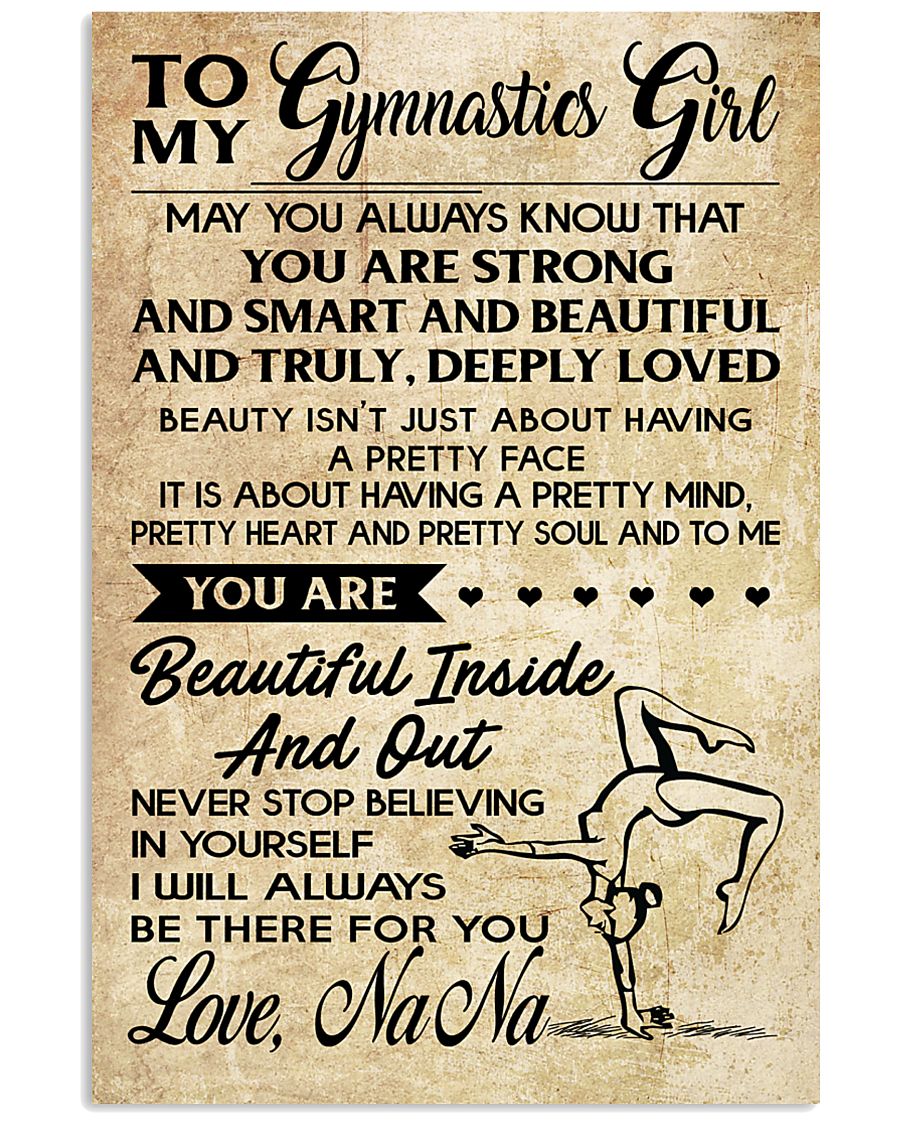 TO MY Gymnastics Girl
MAY YOU ALWAYS KNOW THAT
YOU ARE STRONG
AND SMART AND BEAUTIFUL
AND TRULY, DEEPLY LOVED
BEAUTY ISN'T JUST ABOUT HAVING
A PRETTY FACE
IT IS ABOUT HAVING A PRETTY MIND,
PRETTY HEART AND PRETTY SOUL AND TO ME
YOU ARE
Beautiful Inside
And Out
NEVER STOP BELIEVING
IN YOURSELF
I WILL ALWAYS
BE THERE FOR YOU
Love, NaNa